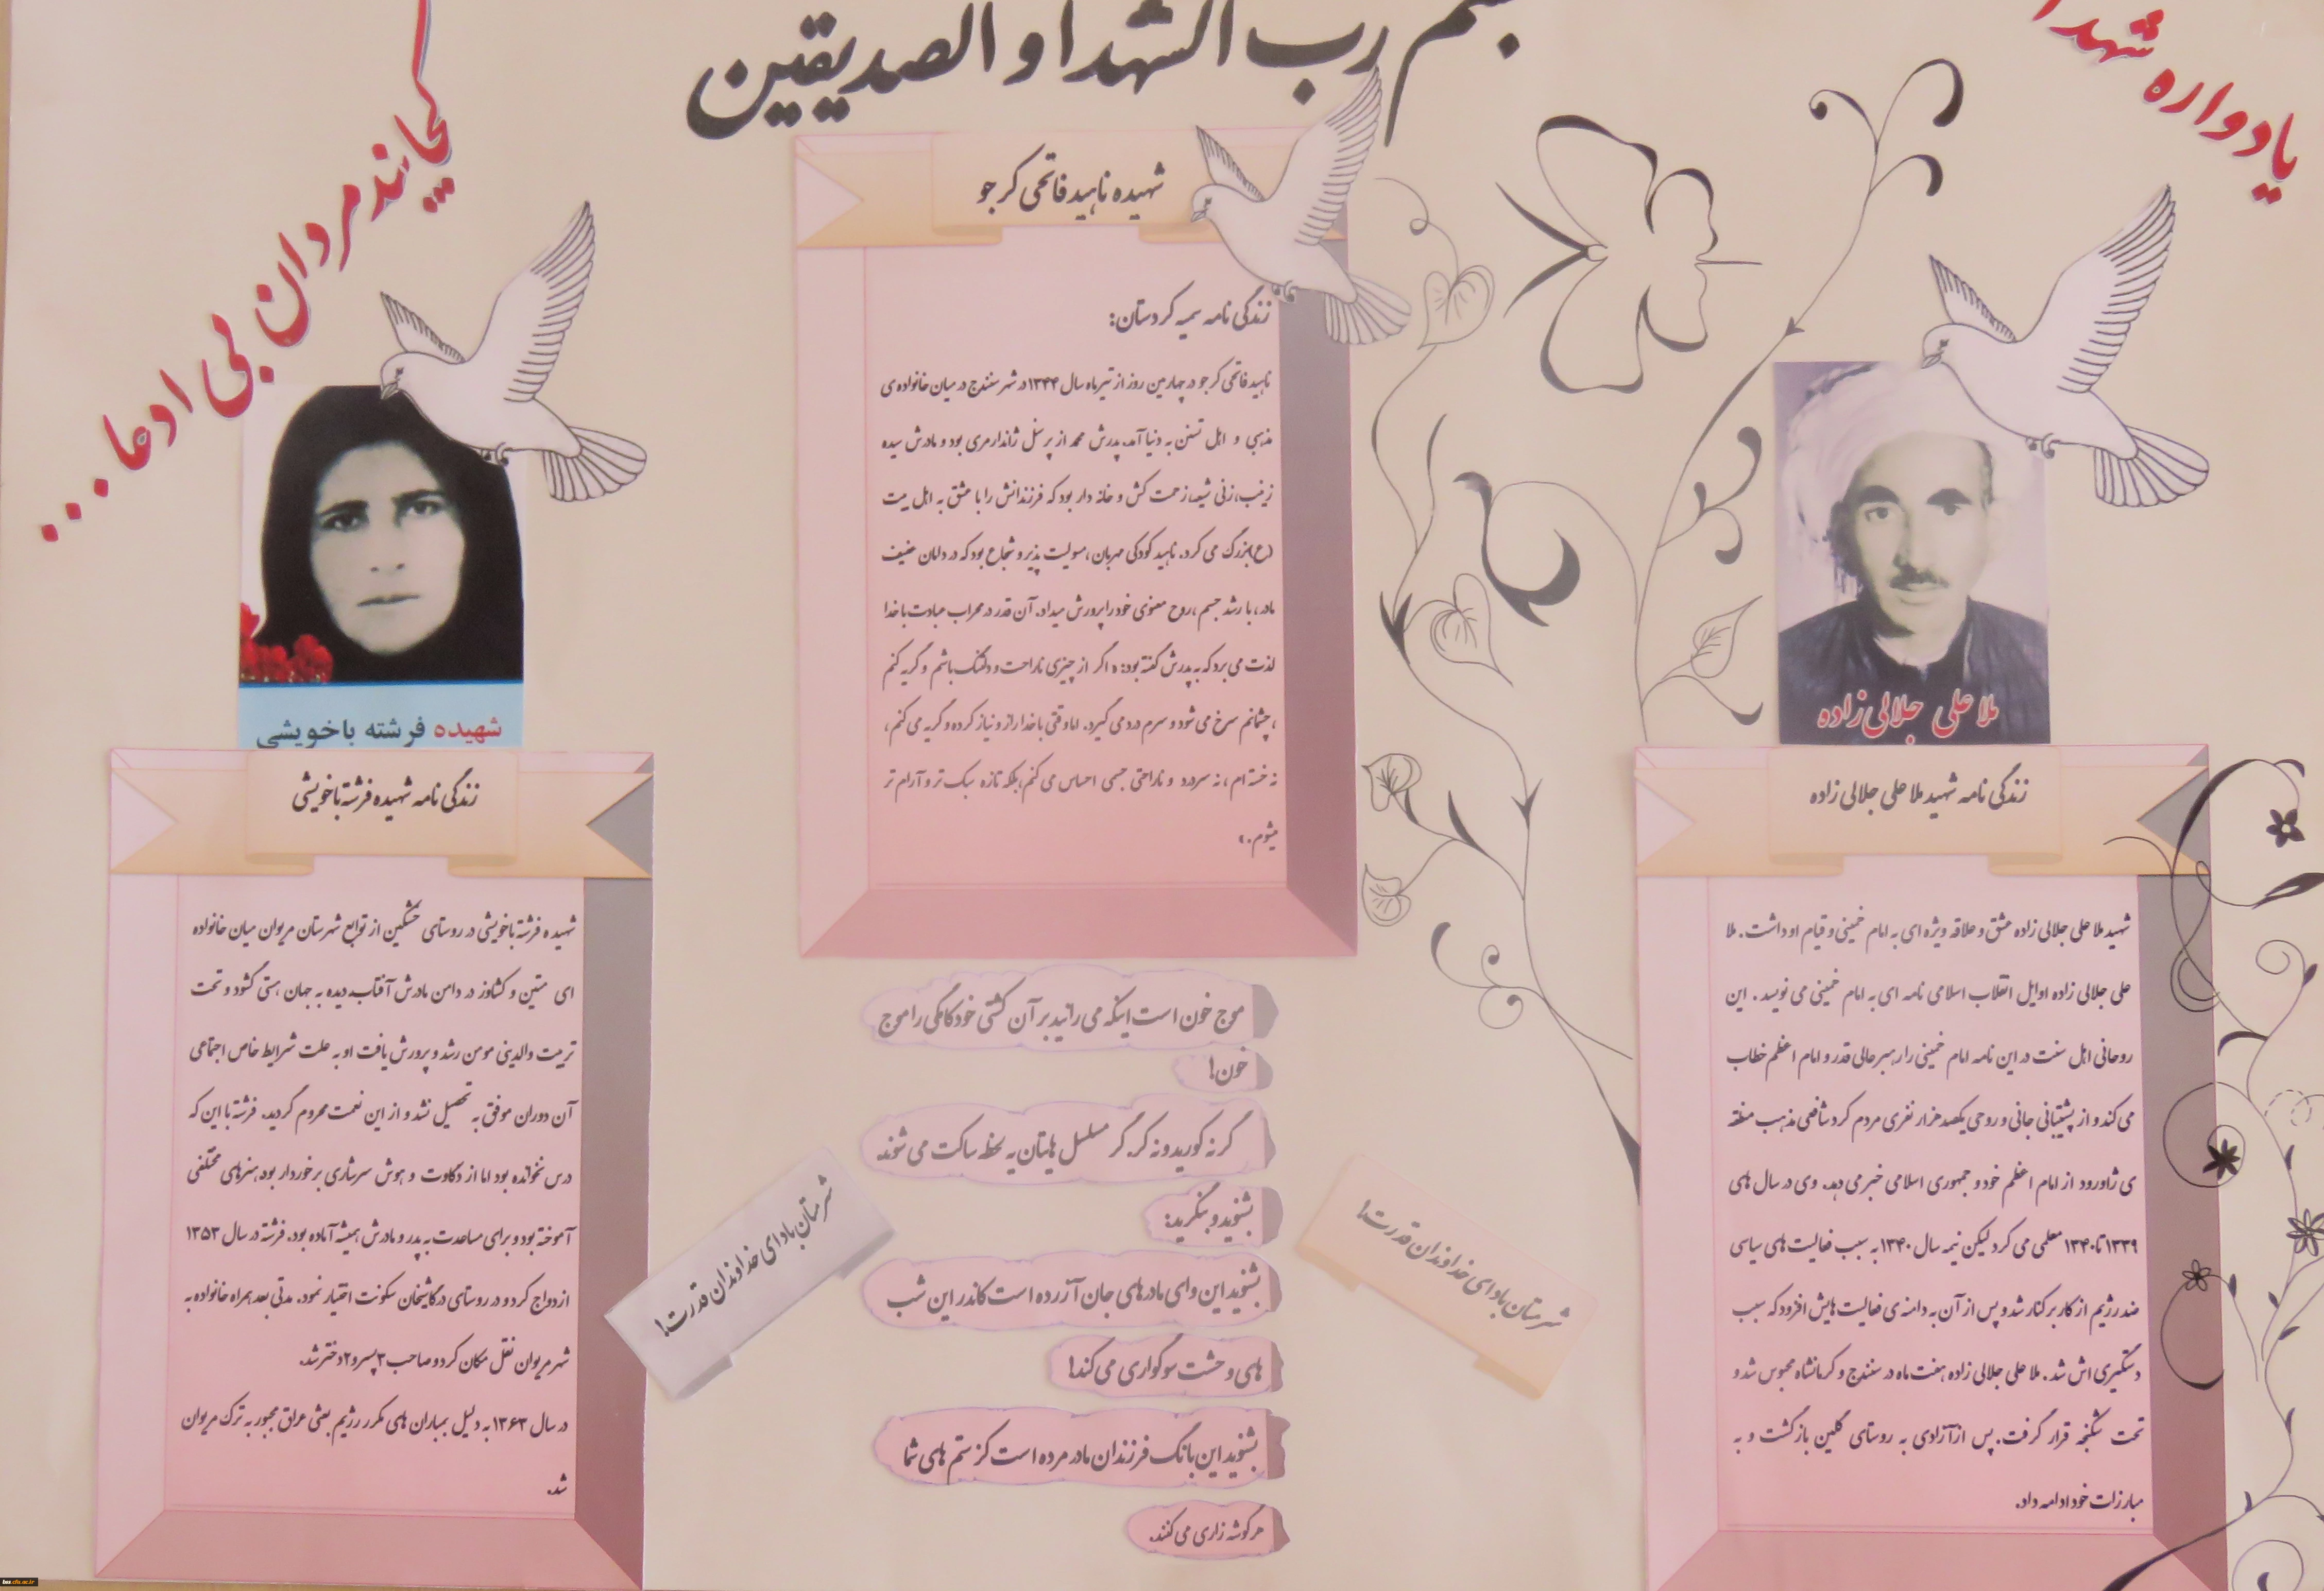 بسم رب الشهدا و الصدیقین
یادواره شهدا
کجایند مردان بی ادعا...
شهیده ناهید فاتحی کرجو
زندگی نامه سمیه کردستان:
ناهید فاتحی کرجو در چهارمین روز از تیرماه سال ۱۳۴۴ در شهر سنندج در میان خانواده ی
مذهبی و اهل تسنن به دنیا آمد. پدرش محمد از پرسنل ژاندارمری بود و مادرش سیده
زینب، زنی شیعه، زحمت کش و خانه دار بود که فرزندانش را با عشق به اهل بیت
(ع) بزرگ می کرد. ناهید کودکی مهربان، مسولیت پذیر و شجاع بود که در دامان عفیف
مادر، با رشد جسم، روح معنوی خود را پرورش میداد. آن قدر در محراب عبادت با خدا
لذت می برد که به پدرش گفته بود: « اگر از چیزی ناراحت و دلتنگ باشم و گریه کنم
، چشمانم سرخ می شود و سرم درد می گیرد. اما وقتی با خدا راز و نیاز کرده و گریه می کنم،
نه خسته ام، نه سردرد و ناراحتی جسمی احساس می کنم، بلکه تازه سبک تر و آرام تر
میشوم. »
ملا علی جلالی زاده
زندگی نامه شهید ملا علی جلالی زاده
شهید ملا علی جلالی زاده عشق و علاقه ویژه ای به امام خمینی و قیام او داشت. ملا
علی جلالی زاده اوایل انقلاب اسلامی نامه ای به امام خمینی می نویسد. این
روحانی اهل سنت در این نامه امام خمینی را رهبر عالی قدر و امام اعظم خطاب
می کند و از پشتیبانی جانی و روحی یکصد هزار نفری مردم کرد شافعی مذهب منطقه
ی ژاورود از امام اعظم خود و جمهوری اسلامی خبر می دهد. وی در سال های
۱۳۳۹ تا ۱۳۴۰ معلمی می کرد لیکن نیمه سال ۱۳۴۰ به سبب فعالیت های سیاسی
ضد رژیم از کار برکنار شد و پس از آن به دامنه ی فعالیت هایش افزود که سبب
دستگیری اش شد. ملا علی جلالی زاده هفت ماه در سنندج و کرمانشاه محبوس شد و
تحت شکنجه قرار گرفت. پس از آزادی به روستای گلین بازگشت و به
مبارزات خود ادامه داد.
شهیده فرشته باخویشی
زندگی نامه شهیده فرشته باخویشی
شهیده فرشته باخویشی در روستای خشکین از توابع شهرستان مریوان میان خانواده
ای متین و کشاورز در دامن مادرش آفتاب دیده به جهان هستی گشود و تحت
تربیت والدینی مومن رشد و پرورش یافت او به علت شرایط خاص اجتماعی
آن دوران موفق به تحصیل نشد و از این نعمت محروم گردید. فرشته با این که
درس نخوانده بود اما از ذکاوت و هوش سرشاری برخوردار بود، هنرهای مختلفی
آموخته بود و برای مساعدت به پدر و مادرش همیشه آماده بود. فرشته در سال ۱۳۵۳
ازدواج کرد و در روستای درکاشیخان سکونت اختیار نمود. مدتی بعد همراه خانواده به
شهر مریوان نقل مکان کرد و صاحب ۳ پسر و ۲ دختر شد.
در سال ۱۳۶۳ به دلیل بمباران های مکرر رژیم بعثی عراق مجبور به ترک مریوان
شد.
موج خون است اینکه می رانید بر آن کشتی خودکامگی را موج
خون!
گر نه کورید و نه کر. گر مسلسل هایتان یه لحظه ساکت می شوند
بشنوید و بنگرید:
بشنوید این وای مادرهای جان آزرده است کاندر این شب
های وحشت سوگواری می کند!
بشنوید این بانگ فرزندان مادر مرده است کز ستم های شما
هر گوشه زاری می کنند.
شرمتان باد ای خداوندان قدرت!
شرمتان باد ای خداوندان قدرت!